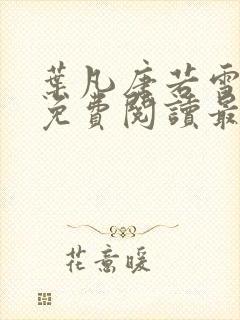 葉凡唐若雪
免費閱讀最
花意暖